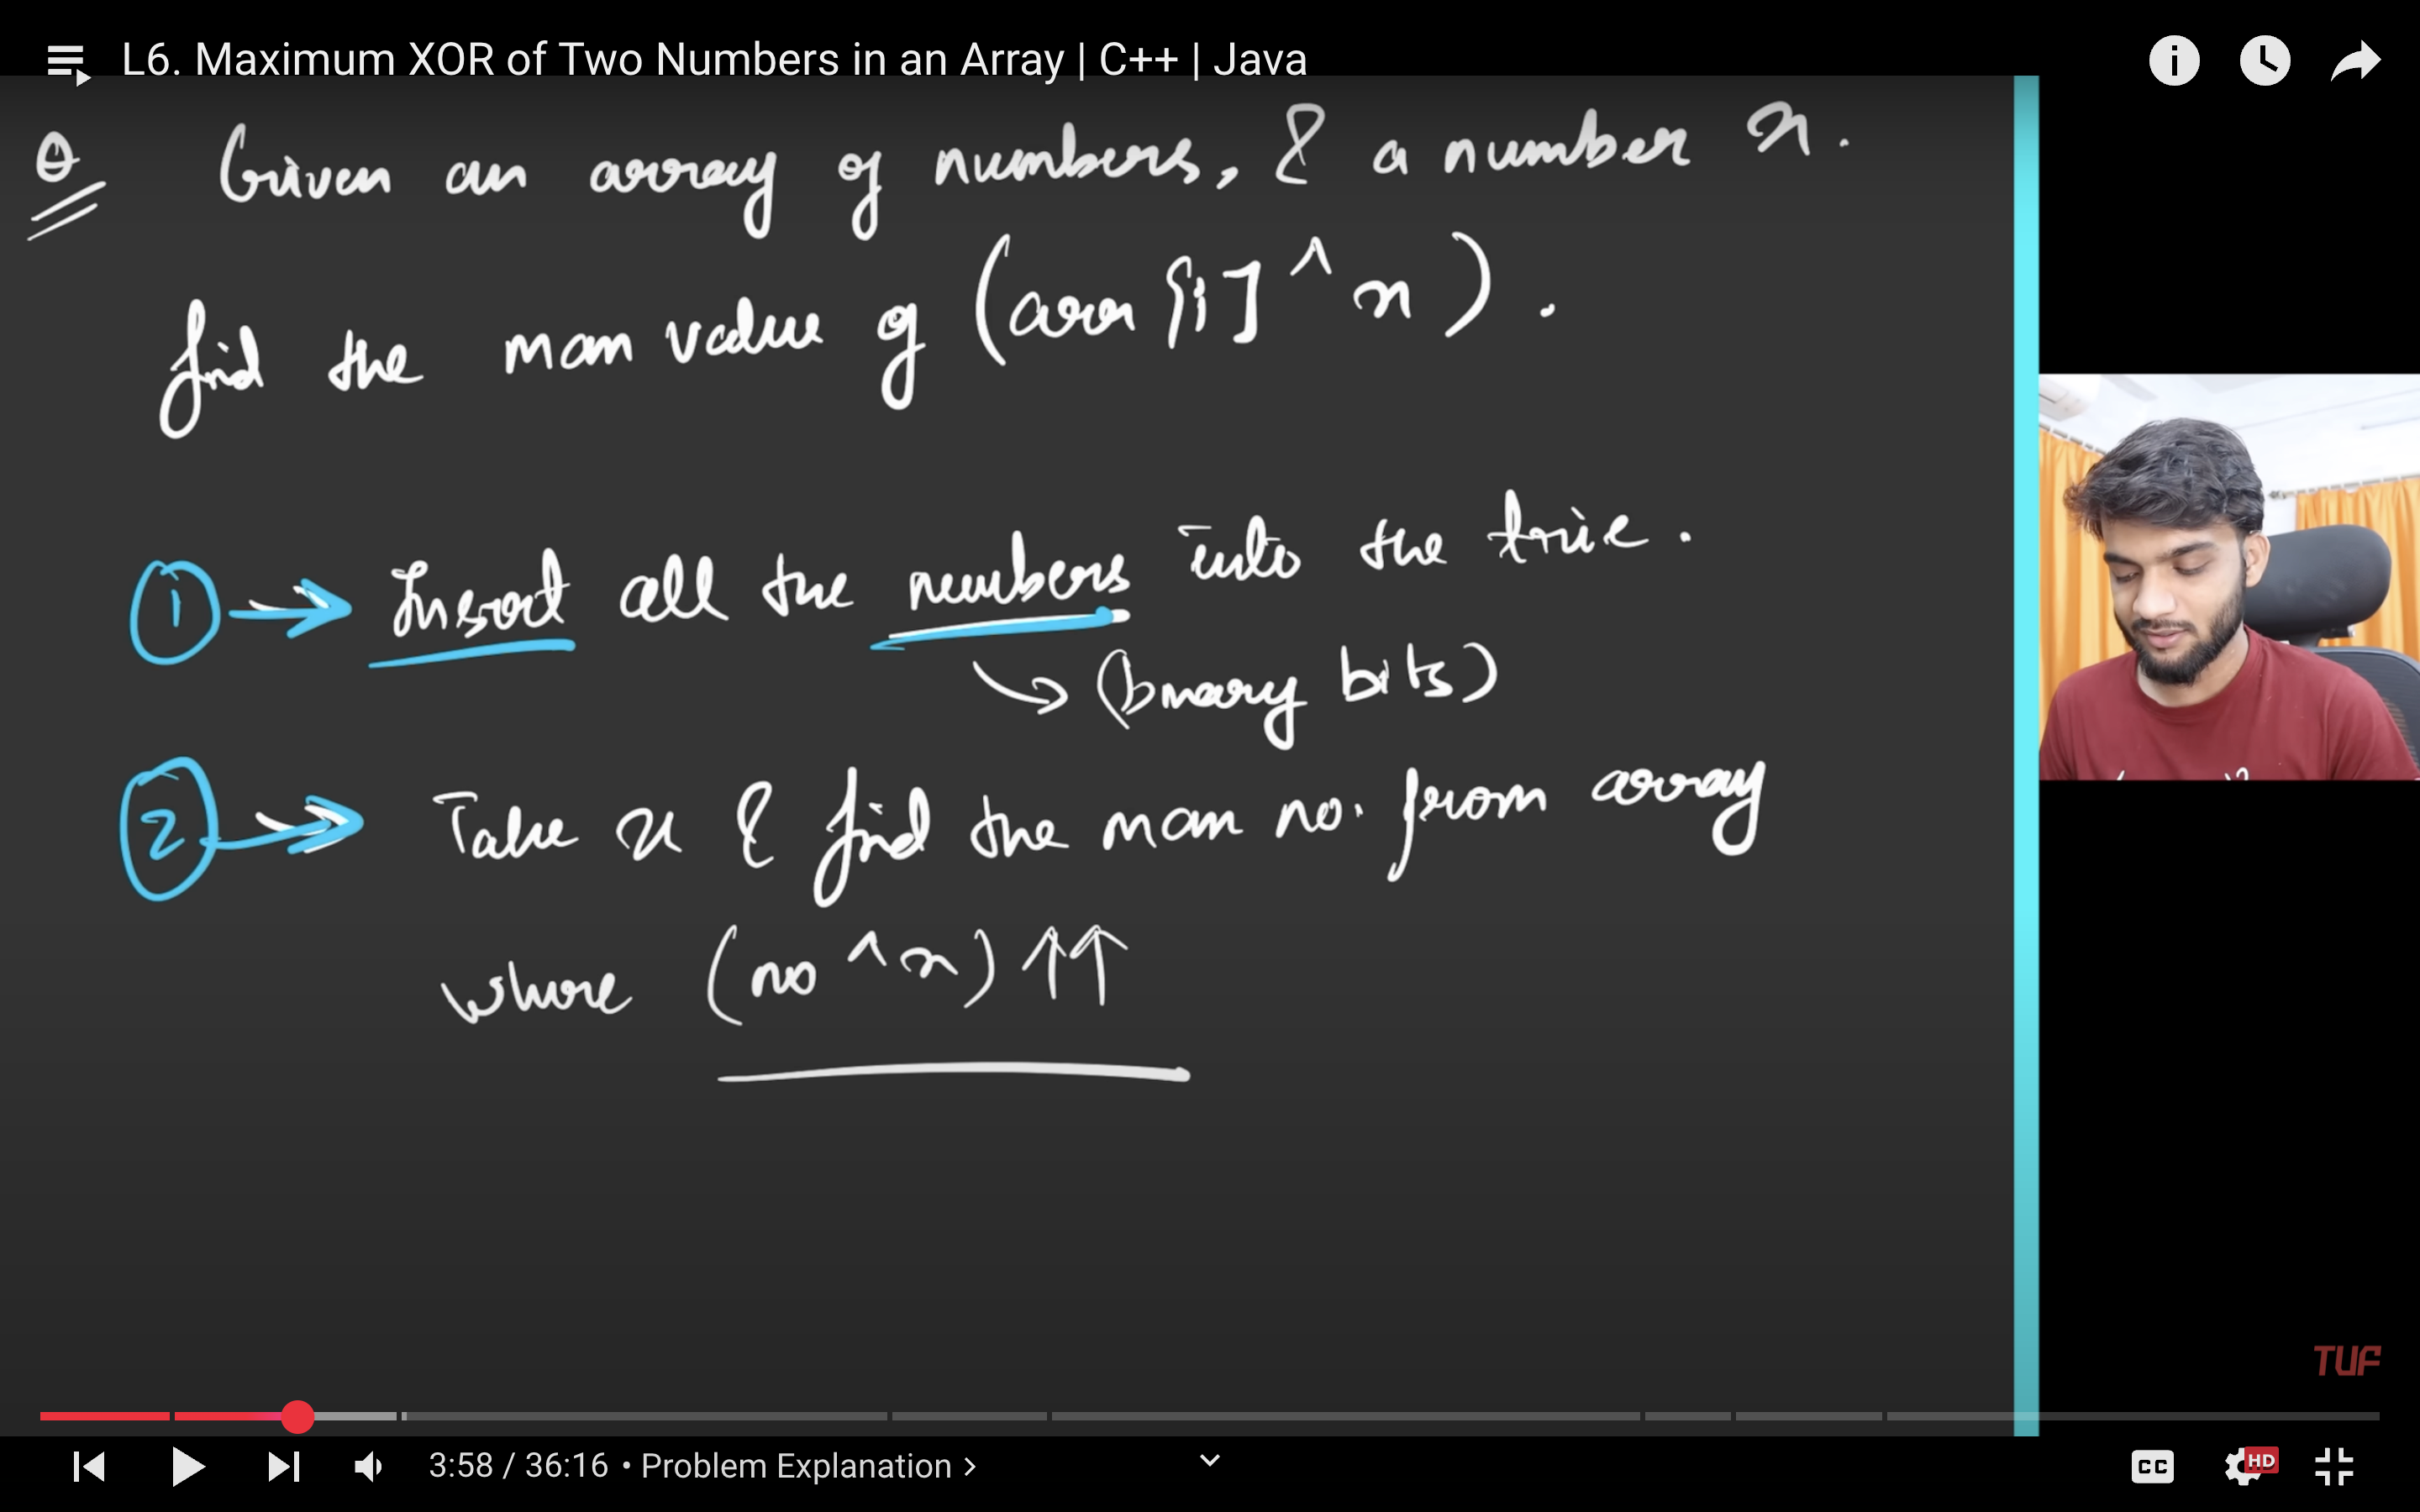 L6. Maximum XOR of Two Numbers in an Array | C++ | Java
Q Given an array of numbers, & a number x.
find the max value of (arr[i] ^ x).
1 → Insert all the numbers into the trie.
→ (binary bits)
2 → Take x & find the max no. from array
where (no ^ x) ↑↑
TUF
3:58 / 36:16 • Problem Explanation >
CC
HD